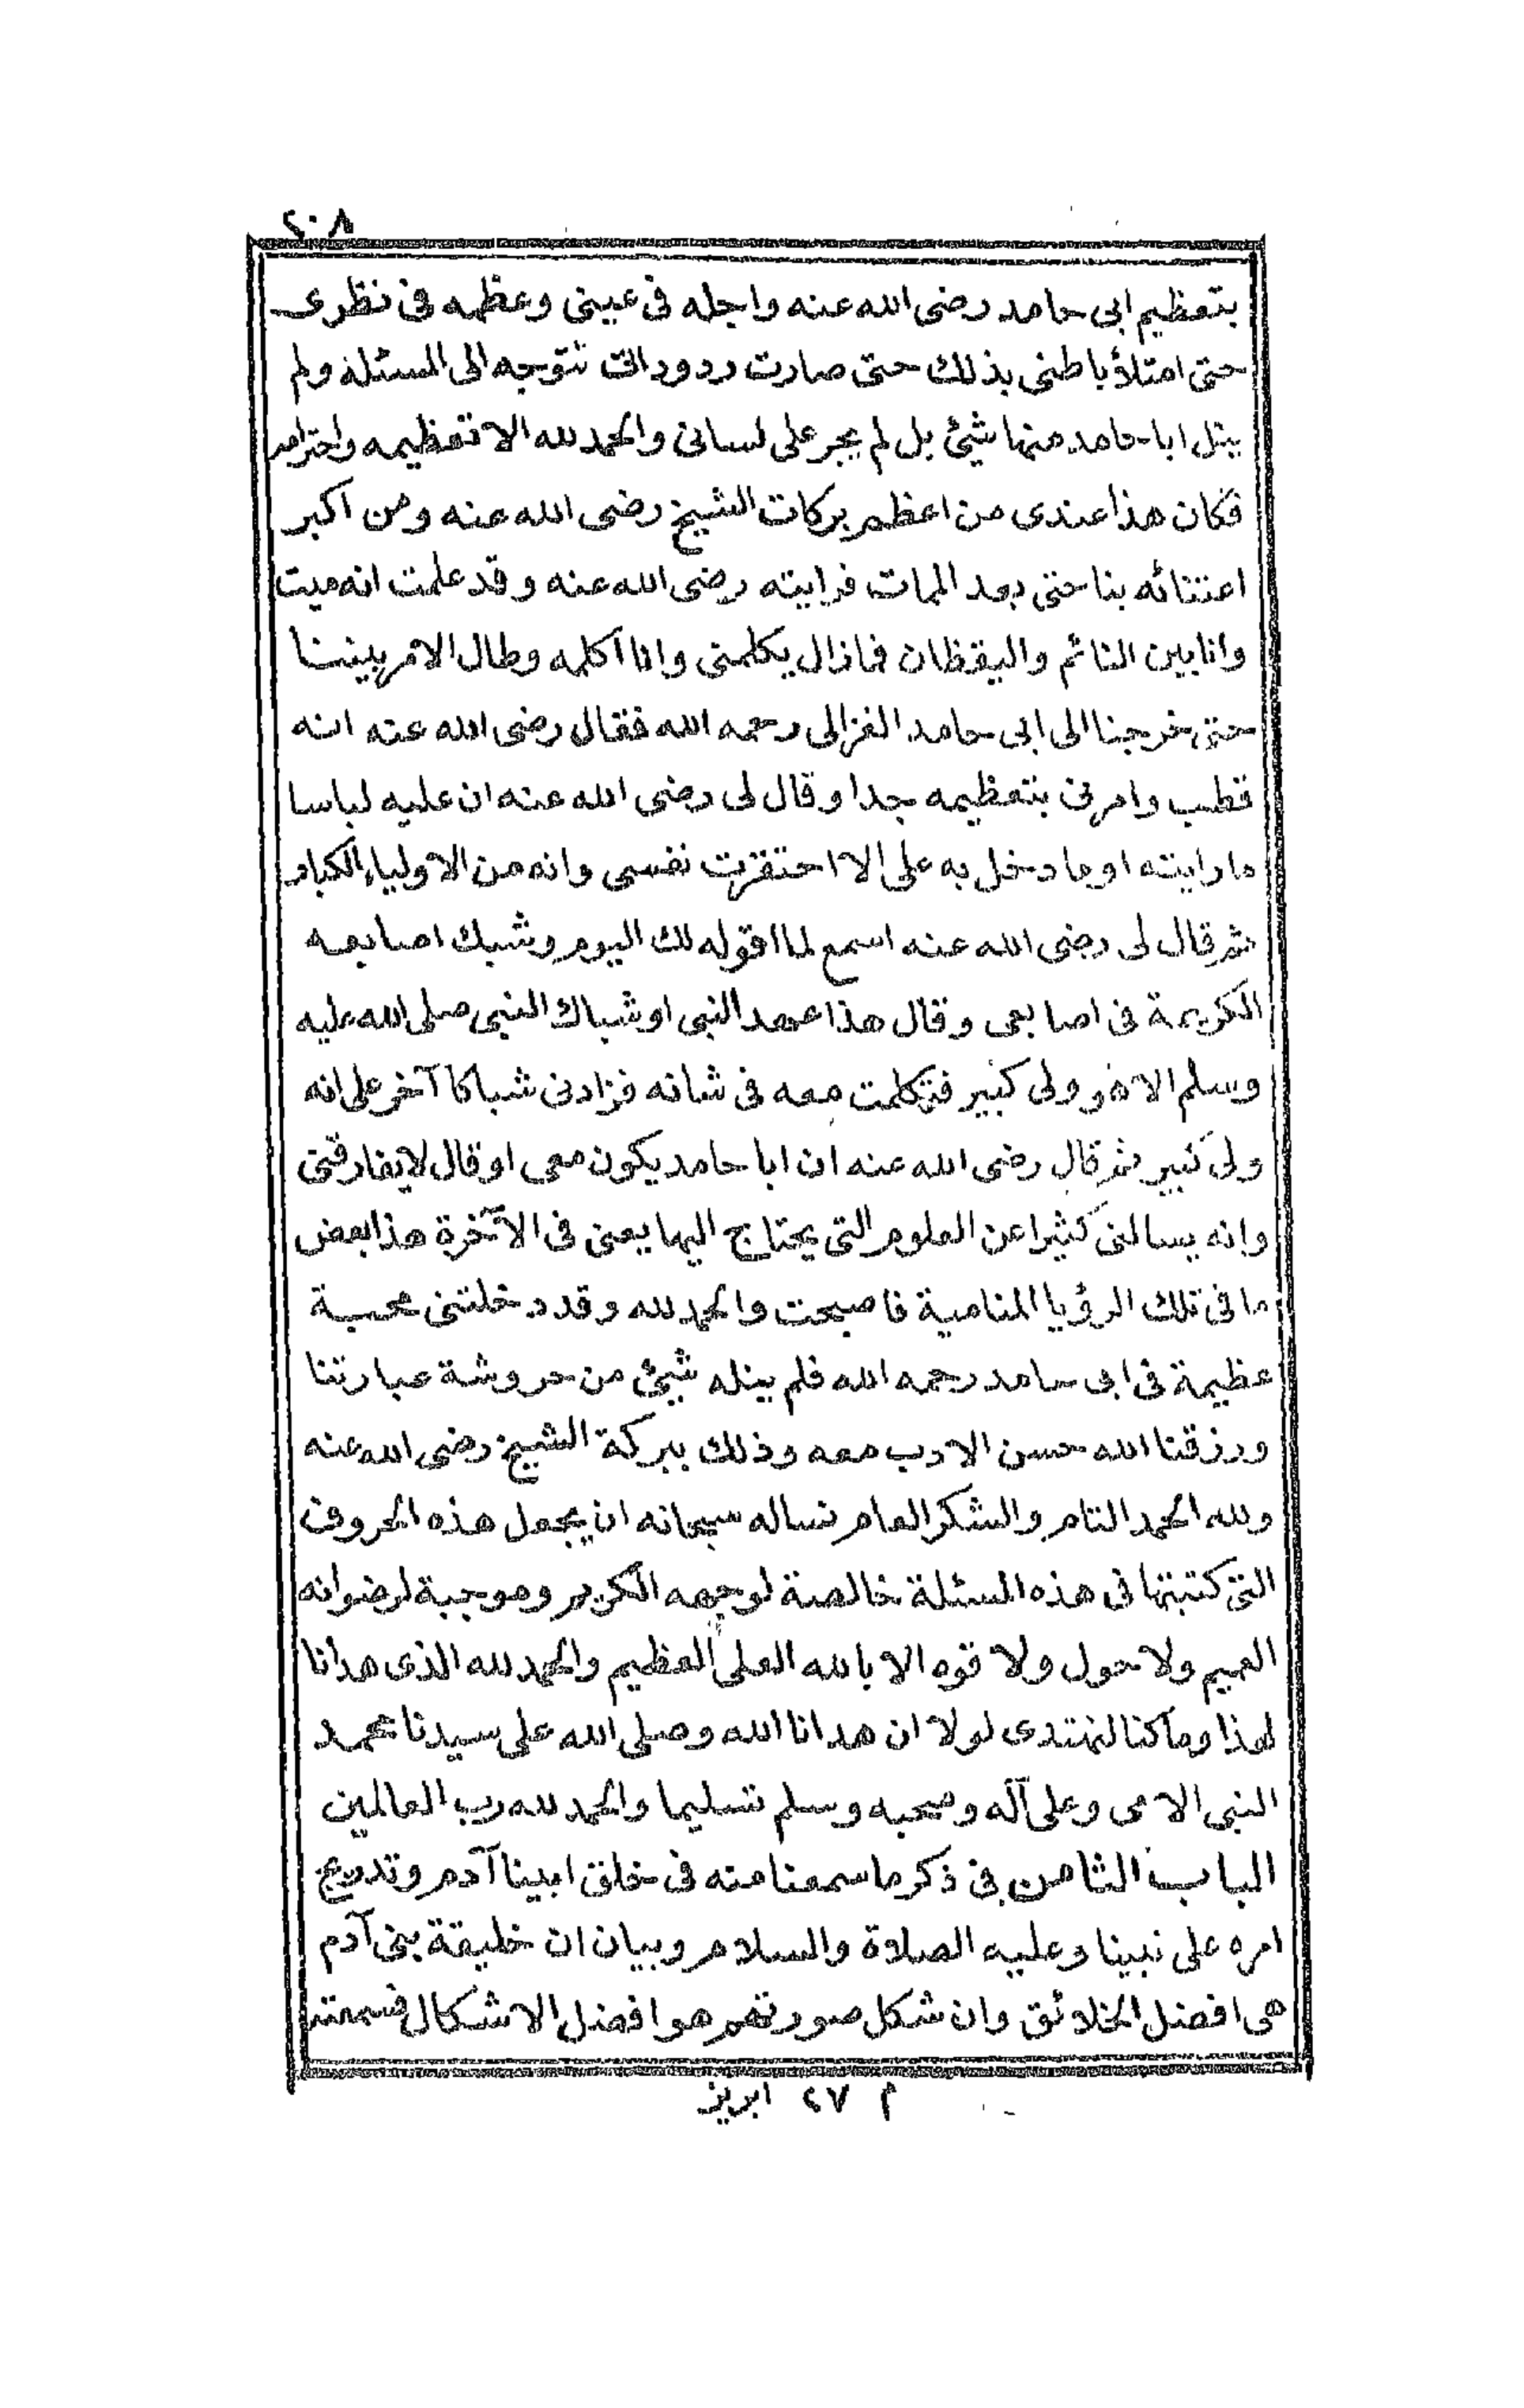 ٢٠٨
بتعظيم ابى حامد رضى الله عنه واجله فى عينى وعظمه فى نظرى
حتى امتلأ باطنى بذلك حتى صارت ردوداتى تتوجه الى المسئلة ولم
ينل ابا حامد منها شيئ بل لم يجر على لسانى والحمد لله الا تعظيمه واحترامه
فكان هذا عندى من اعظم بركات الشيخ رضى الله عنه ومن اكبر
اعتنائه بنا حتى بعد الممات فرايته رضى الله عنه وقد علمت انه ميت
وانا بين النائم واليقظان فمازال يكلمنى وانا اكلمه وطال الامر بيننا
حتى خرجنا الى ابى حامد الغزالى رحمه الله فقال رضى الله عنه انه
قطب وامرنى بتعظيمه جدا وقال لى رضى الله عنه ان عليه لباسا
ما رايته او ما دخل به على الا احتقرت نفسى وانه من الاولياء الكبار
ثم قال لى رضى الله عنه اسمع لما اقوله لك اليوم وشبك اصابعه
الكريمة فى اصابعى وقال هذا عهد النبى او شباك النبى صلى الله عليه
وسلم الا وولى كبير فتكلمت معه فى شانه فزادنى شباكا آخر على انه
ولى كبير ثم قال رضى الله عنه ان ابا حامد يكون معى او قال لا يفارقنى
وانه يسالنى كثيرا عن العلوم التى يحتاج اليها يعنى فى الآخرة هذا بعض
ما فى تلك الرؤيا المنامية فاصبحت والحمد لله وقد دخلتنى محبة
عظيمة فى ابى حامد رحمه الله فلم ينله شيئ من حروشة عبارتنا
ورزقنا الله حسن الادب معه وذلك ببركة الشيخ رضى الله عنه
ولله الحمد التام والشكر العام نساله سبحانه ان يجعل هذه الحروف
التى كتبتها فى هذه المسئلة خالصة لوجهه الكريم وموجبة لرضوانه
العميم ولا حول ولا قوه الا بالله العلى العظيم والحمد لله الذى هدانا
لهذا وما كنا لنهتدى لولا ان هدانا الله وصلى الله على سيدنا محمد
النبى الامى وعلى آله وصحبه وسلم تسليما والحمد لله رب العالمين
الباب الثامن فى ذكر ما سمعنا منه فى خلق ابينا آدم وتدريج
امره على نبينا وعليه الصلاة والسلام وبيان ان خليقة بنى آدم
هى افضل الخلائق وان شكل صورتهم هو افضل الاشكال فسمعته
م ٢٧ ابريز